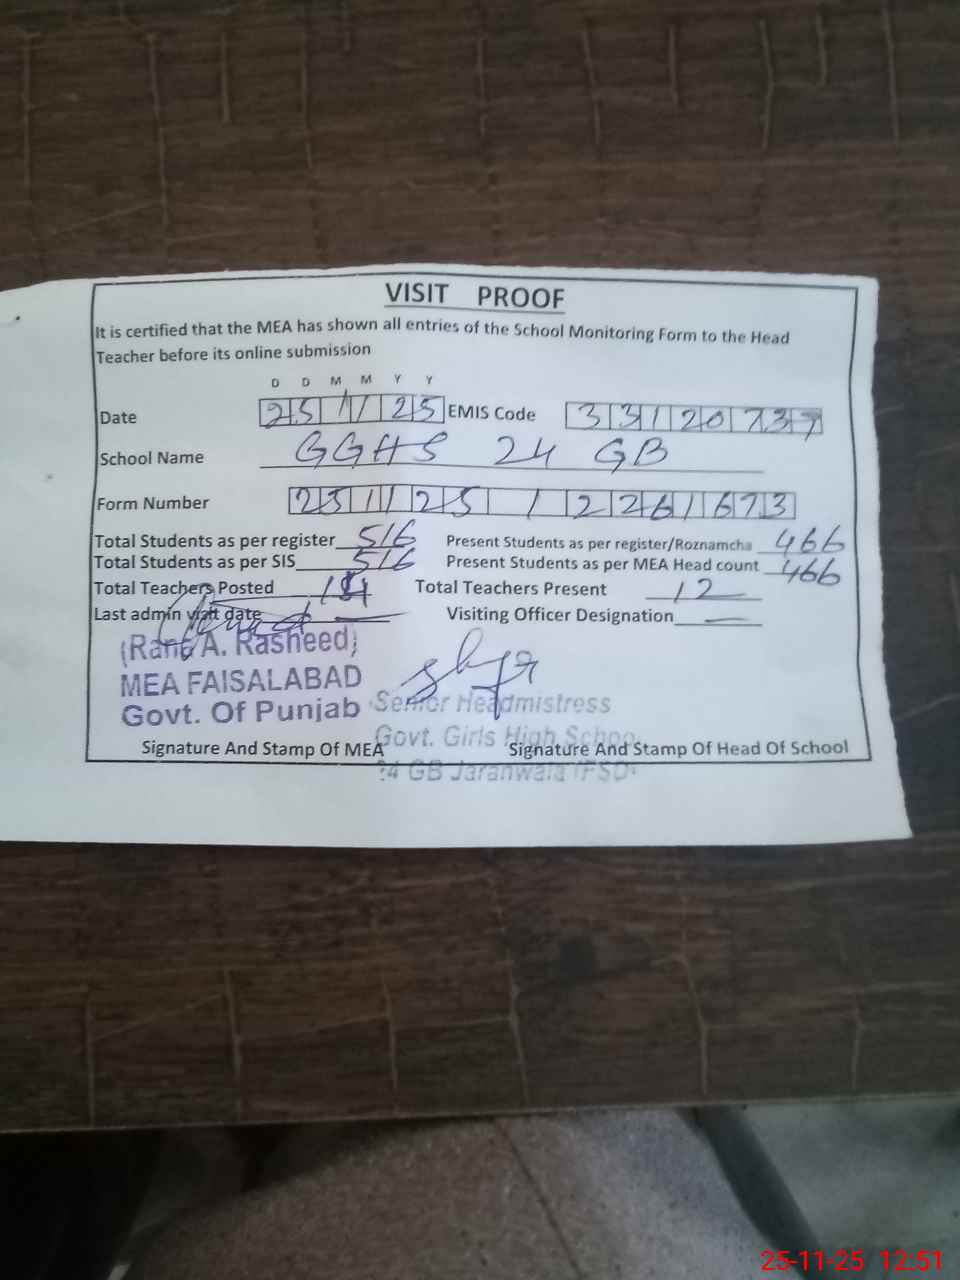 VISIT PROOF
It is certified that the MEA has shown all entries of the School Monitoring Form to the Head
Teacher before its online submission
D D M M Y Y
Date 25 11 25 EMIS Code 33120737
School Name GGHS 24 GB
Form Number 251125 / 2261673
Total Students as per register 516 Present Students as per register/Roznamcha 466
Total Students as per SIS 516 Present Students as per MEA Head count 466
Total Teachers Posted 14 Total Teachers Present 12
Last admin visit date — Visiting Officer Designation —
(Rana A. Rasheed)
MEA FAISALABAD
Govt. Of Punjab
Senior Headmistress
Govt. Girls High School
24 GB Jaranwala (FSD)
Signature And Stamp Of MEA Signature And Stamp Of Head Of School
25-11-25 12:51